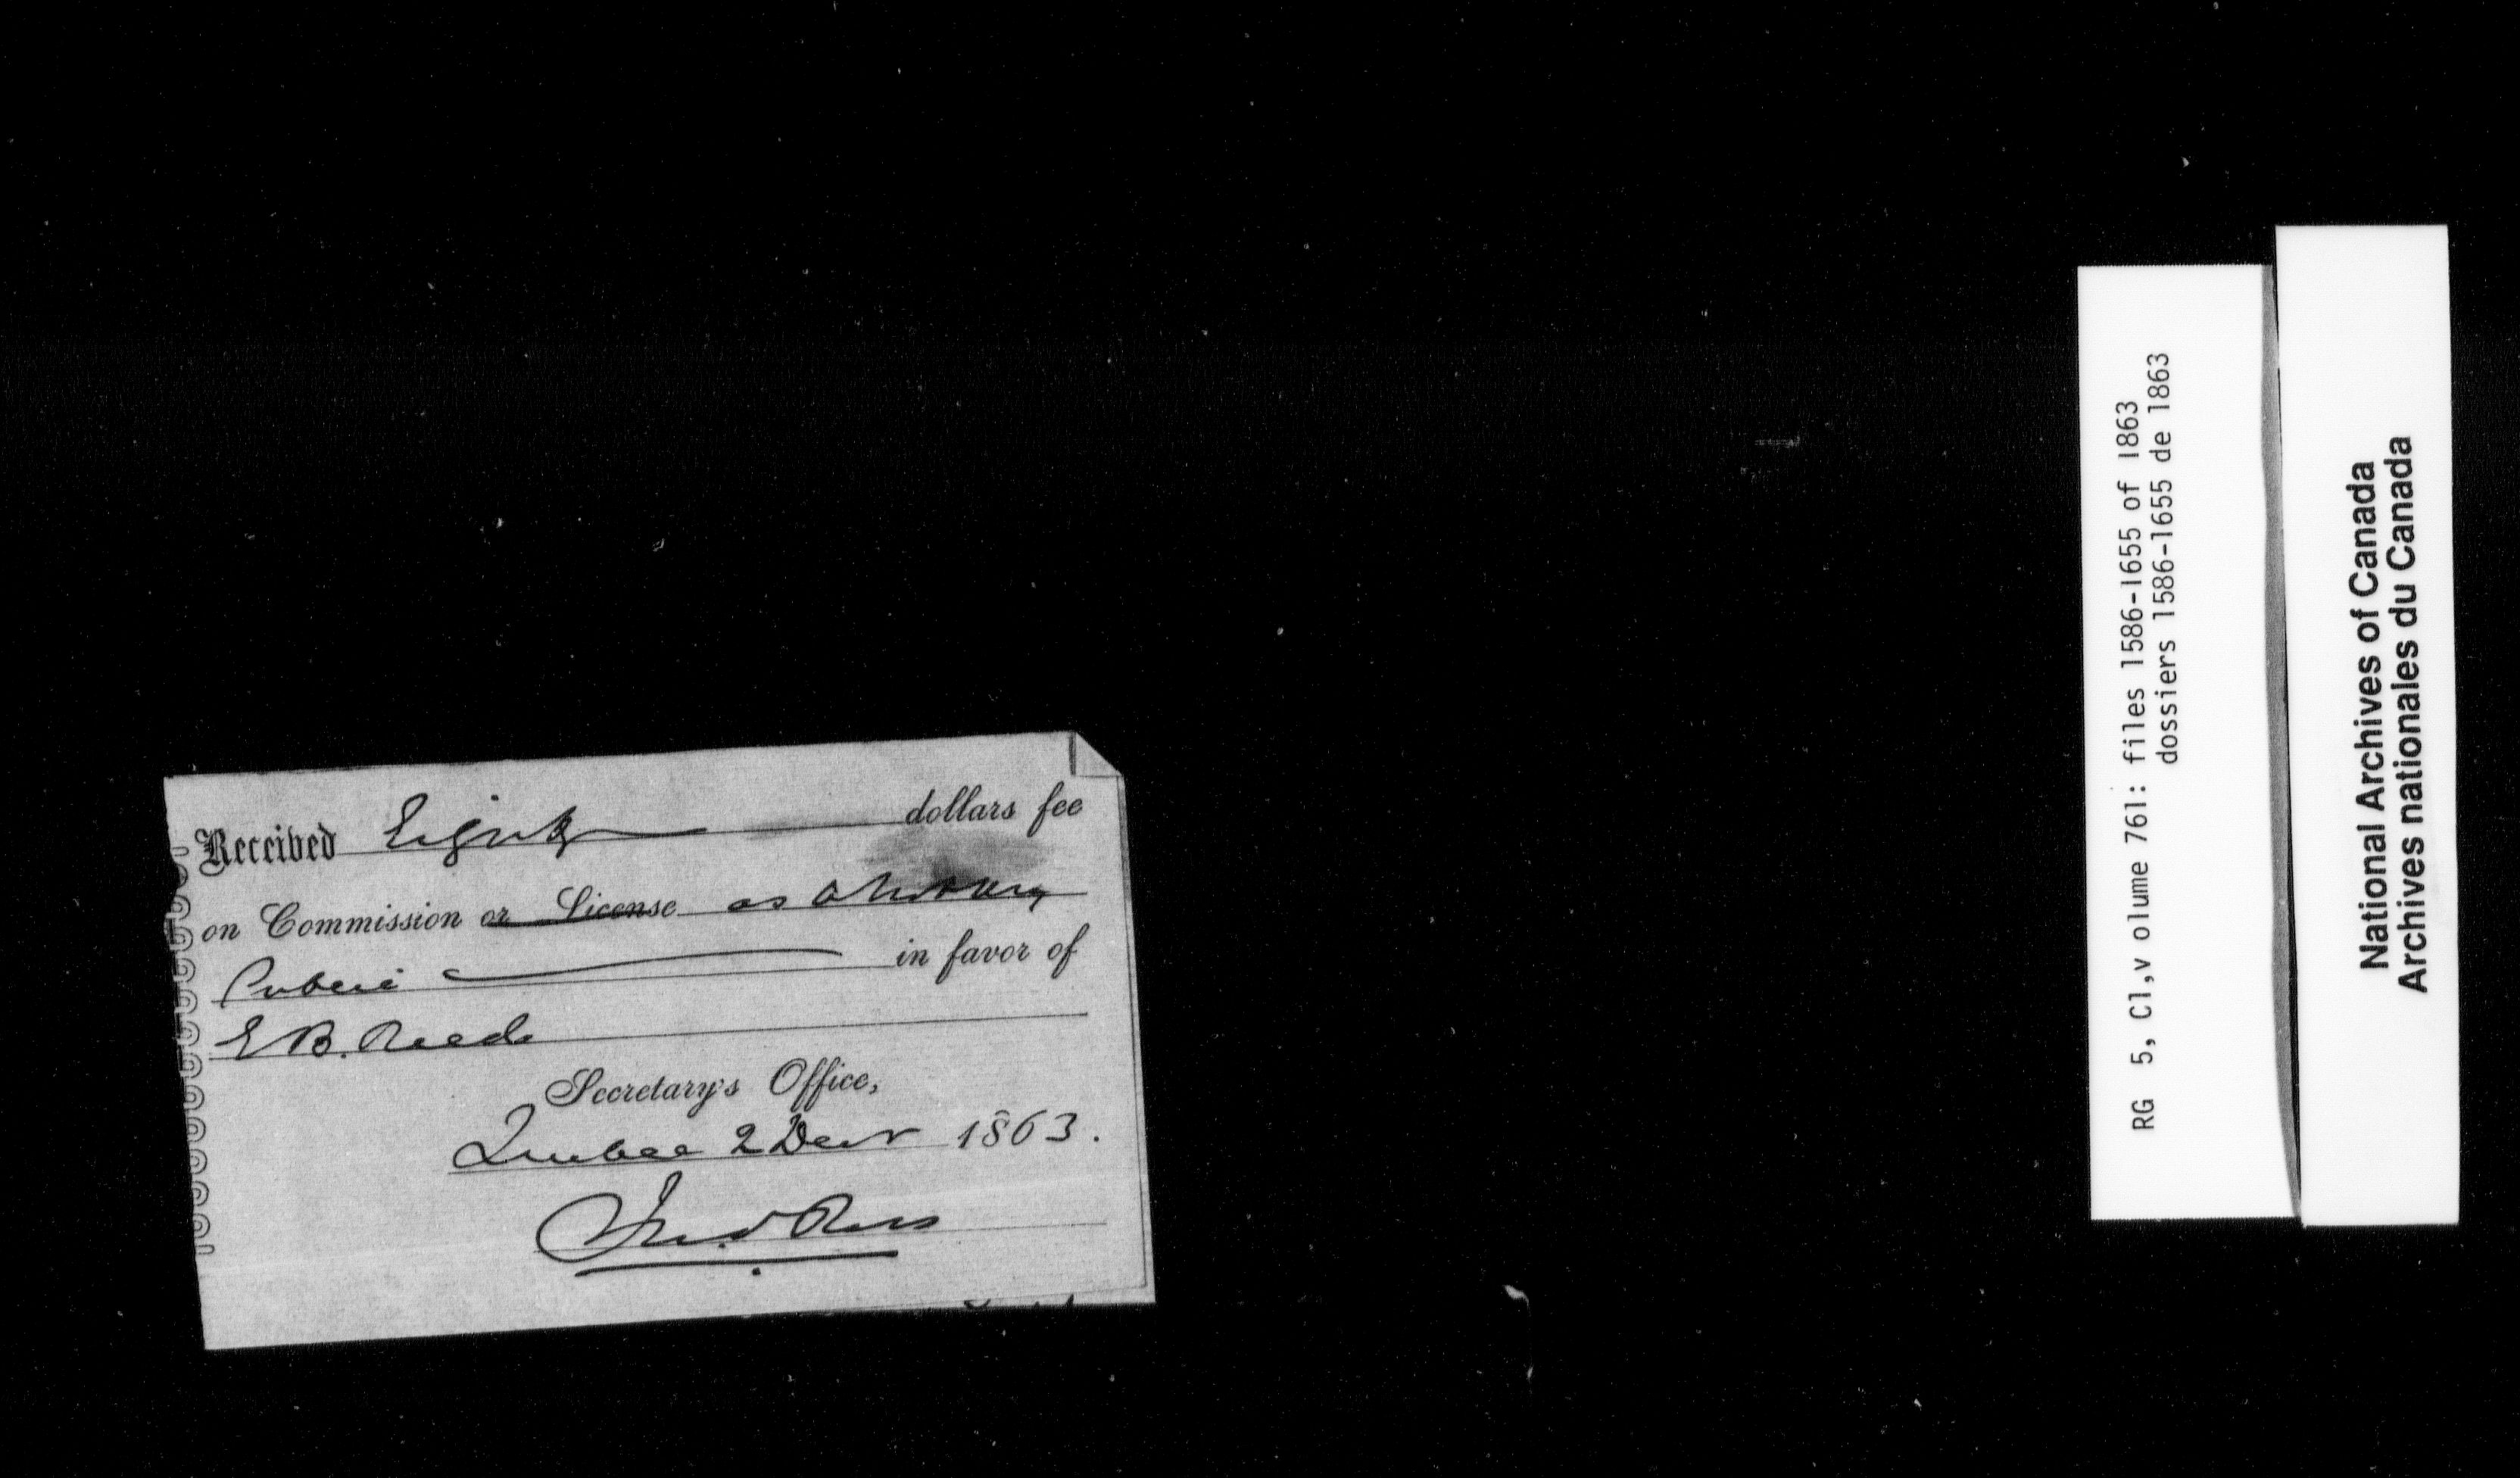 Received Eight dollars fee
on Commission or License as a Notary
Public in favor of
E B. Reed
Secretary's Office,
Quebec 2 Decr 1863.
Ross
RG 5, C1,v olume 761: files 1586-1655 of 1863
dossiers 1586-1655 de 1863
National Archives of Canada
Archives nationales du Canada